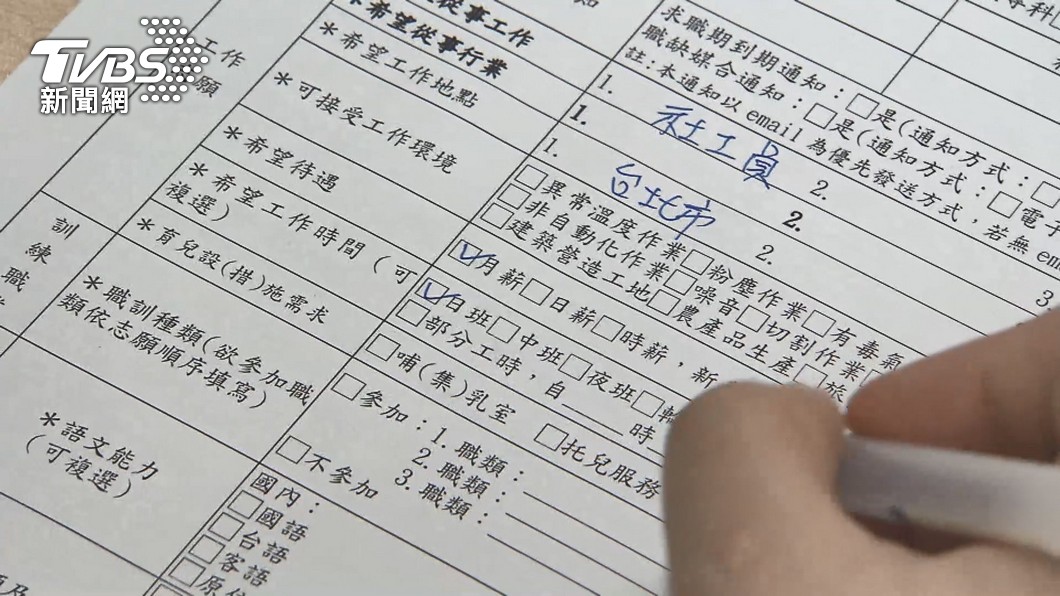 TVBS
新聞網
工作
願
訓
練
職
從事工作
*希望從事行業
*希望工作地點
*可接受工作環境
*希望待遇
*希望工作時間(可
複選)
*育兒設(措)施需求
*職訓種類(欲參加職
類依志願順序填寫)
*語文能力
(可複選)
求職期到期通知:□是(通知方式:□
職缺媒合通知:□是(通知方式:□電子
註:本通知以 email 為優先發送方式,若無 em
1. 2. 3.
1. 社工員 2.
1. 台北市 2.
□異常溫度作業□粉塵作業□有毒氣
□非自動化作業□噪音□切割作業
□建築營造工地□農產品生產□旅
☑月薪□日薪□時薪,新
☑日班□中班□夜班□輪
□部分工時,自____時
□哺(集)乳室 □托兒服務
□參加:1.職類:
2.職類:
3.職類:
□不參加
國內:
□國語
□台語
□客語
□原住